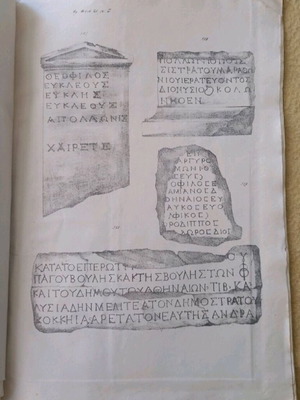 ΘΕΟΦΙΛΟΣ
ΕΥΚΛΕΟΥΣ
ΕΥΚΛΗΣ
ΕΥΚΛΕΟΥΣ
ΑΠΟΛΛΩΝΙΣ
ΧΑΙΡΕΤΕ
ΣΙΣΤΡΑΤΟΥΜΑΡΑΘΩ
ΝΙΟΥΙΕΡΑΤΕΥΟΝΤΟΣ
ΔΙΟΝΥΣΙΟΥΚΟΛΩ
ΝΗΘΕΝ
ΑΡΓΥΡ
ΜΩΝΙΟ
ΟΦΙΛΟΣΕ
ΑΜΙΑΝΟΣΔ
ΘΗΝΑΙΟΣΕΥ
ΑΥΚΟΣΕΥΟ
ΦΙΚΟΣ
ΡΟΔΙΠΠΟΣ
ΔΩΡΟΣΔΙΟ
ΚΑΤΑΤΟΕΠΕΡΩΤ
ΠΑΓΟΥΒΟΥΛΗΣΚΑΙΤΗΣΒΟΥΛΗΣΤΩΝ
ΚΑΙΤΟΥΔΗΜΟΥΤΟΥΑΘΗΝΑΙΩΝ ΤΙΒ ΚΛ
ΛΥΣΙΑΔΗΝΜΕΛΙΤΕΑΤΟΝΔΗΜΟΣΤΡΑΤΟΥ
ΚΟΚΚΗΙΑ ΑΡΕΤΑΤΟΝΕΑΥΤΗΣΑΝΔΡΑ